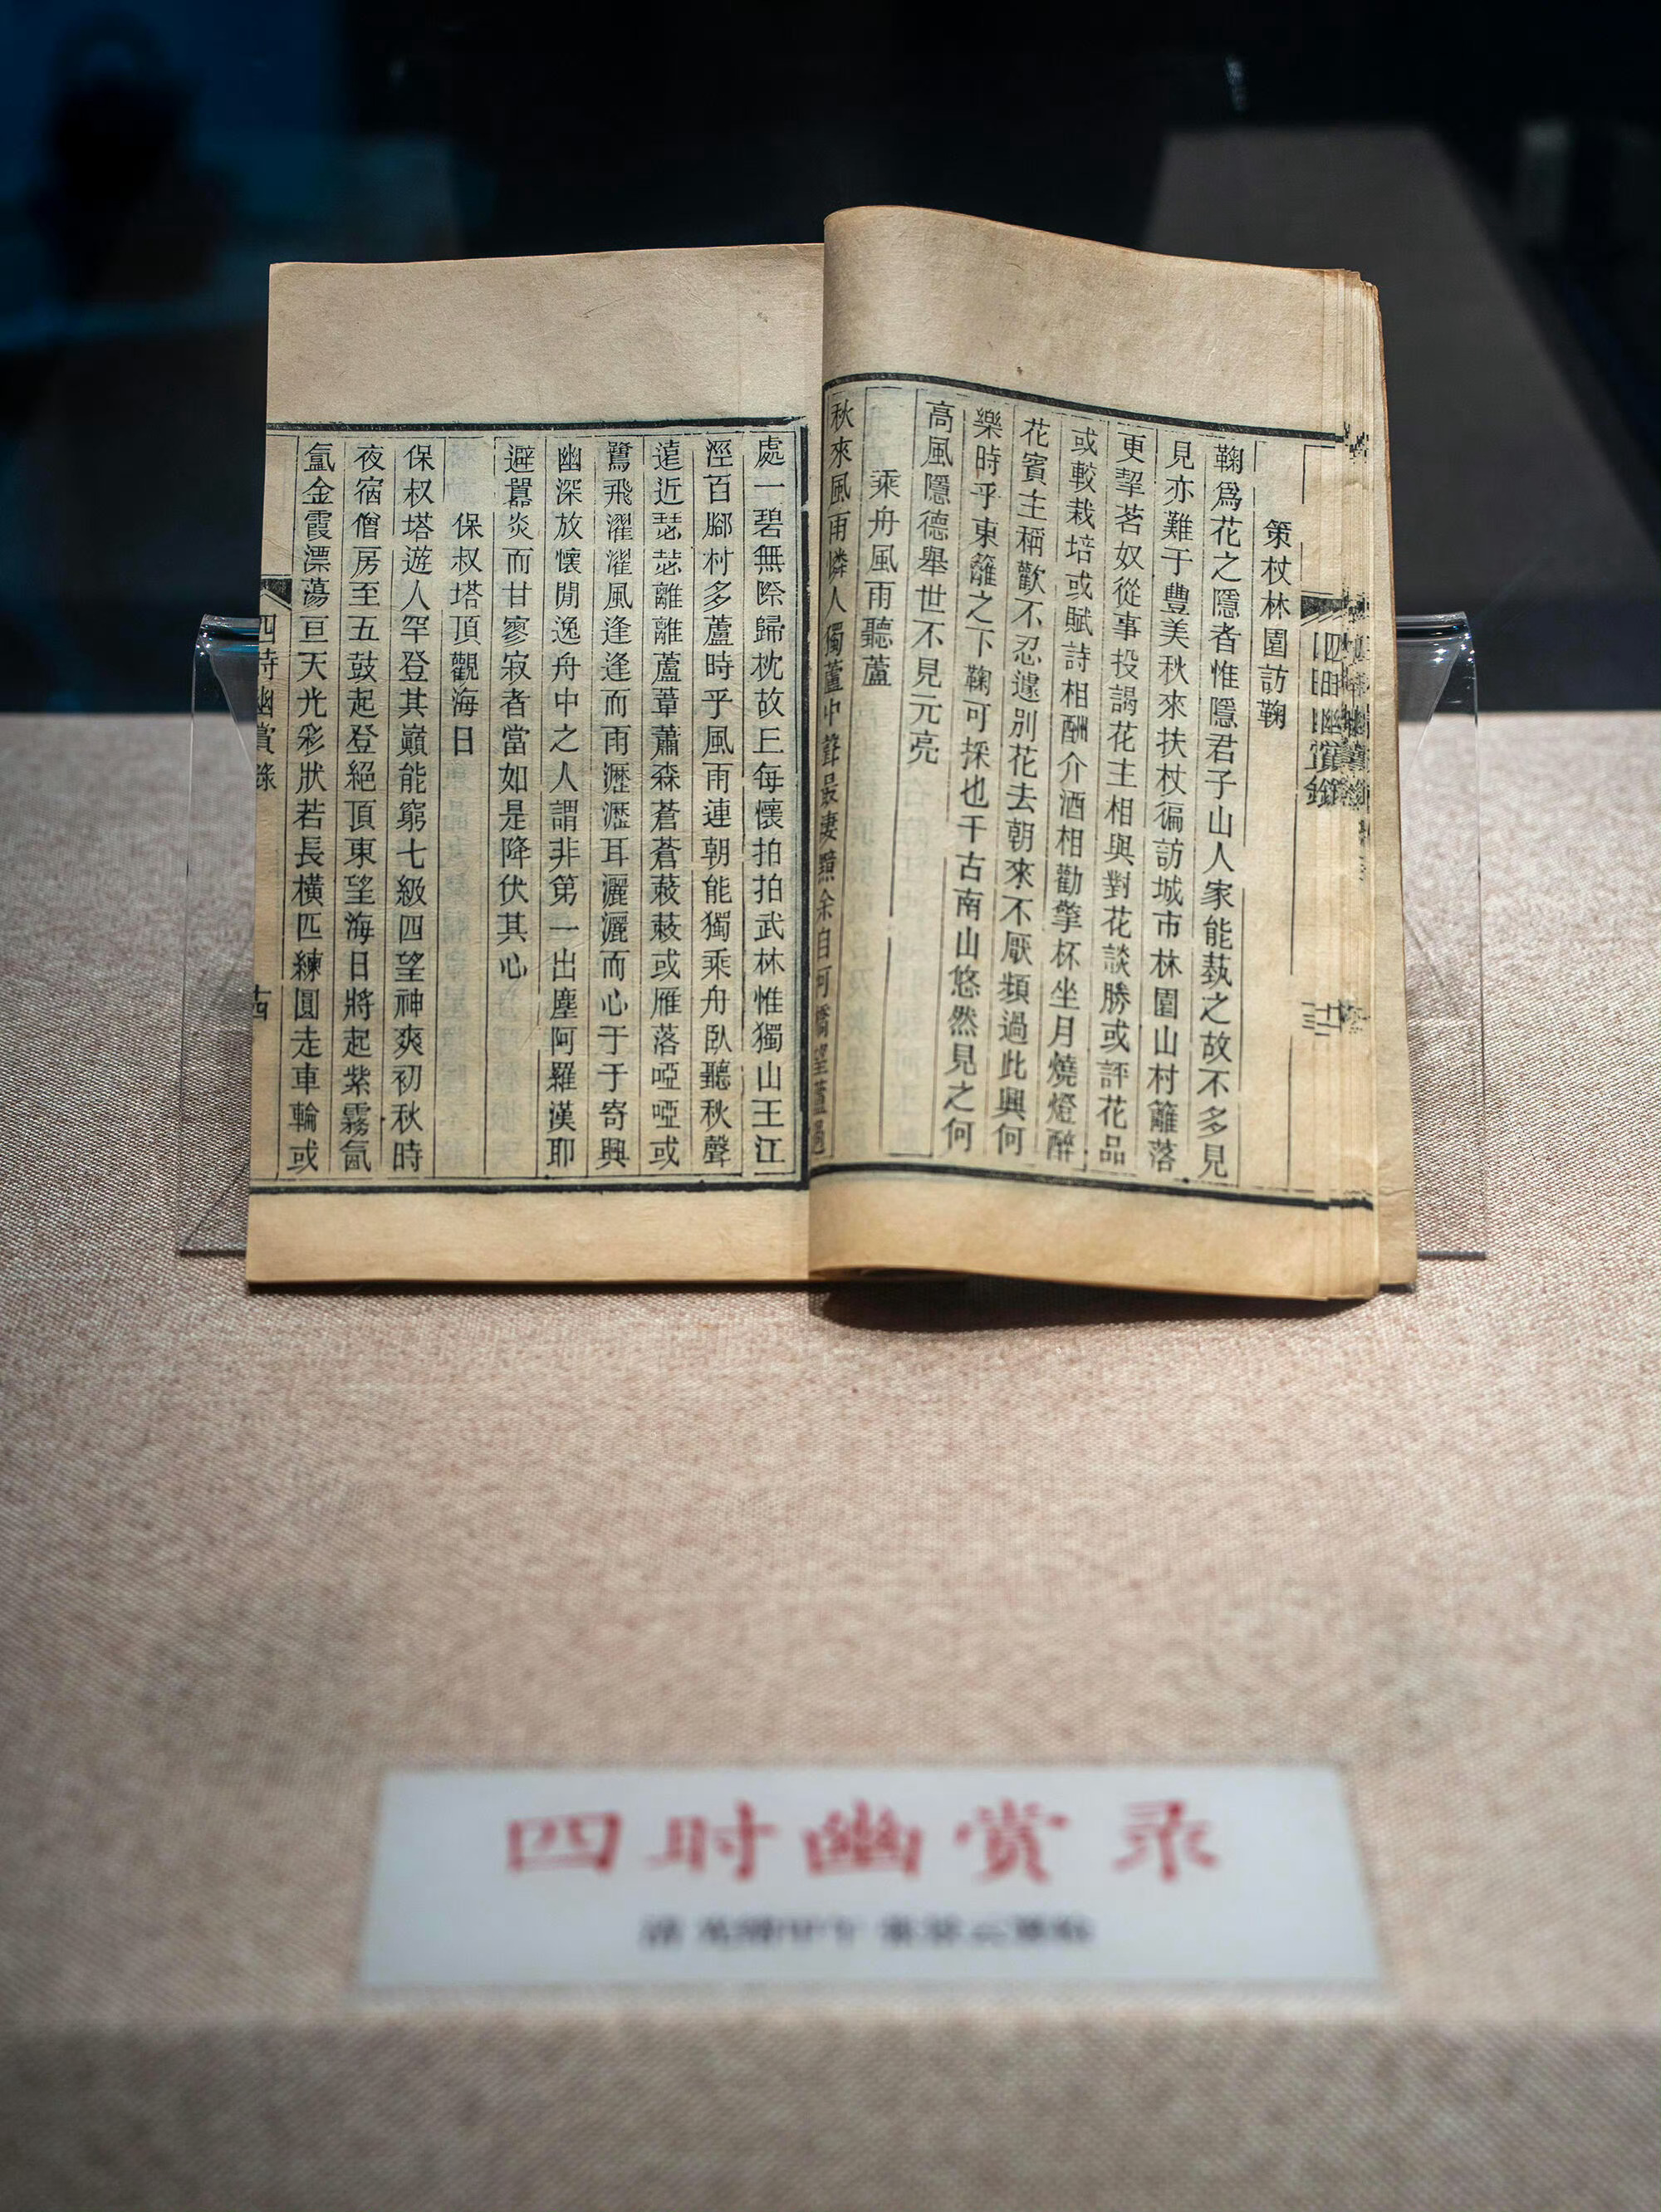 策杖林園訪鞠
鞠爲花之隱者惟隱君子山人家能蓺之故不多見
見亦難于豐美秋來扶杖徧訪城市林園山村籬落
更挈茗奴從事投謁花主相與對花談勝或評花品
或較栽培或賦詩相酬介酒相勸擎杯坐月燒燈醉
花賓主稱歡不忍遽別花去朝來不厭頻過此興何
樂時乎東籬之下鞠可採也千古南山悠然見之何
高風隱德舉世不見元亮
乘舟風雨聽蘆
秋來風雨憐人獨蘆中聲最凄黯余自河橋望蘆過
處一碧無際歸枕故丘每懷拍拍武林惟獨山王江
涇百腳村多蘆時乎風雨連朝能獨乘舟臥聽秋聲
遠近瑟瑟離離蘆葦蕭森蒼蒼蔌蔌或雁落啞啞或
鷺飛濯濯風逢逢而雨瀝瀝耳灑灑而心于于寄興
幽深放懷閒逸舟中之人謂非第一出塵阿羅漢耶
避囂炎而甘寥寂者當如是降伏其心
保叔塔頂觀海日
保叔塔遊人罕登其巔能窮七級四望神爽初秋時
夜宿僧房至五鼓起登絕頂東望海日將起紫霧氤
氳金霞漂蕩亘天光彩狀若長橫匹練圓走車輪或
四時幽賞錄
四时幽赏录